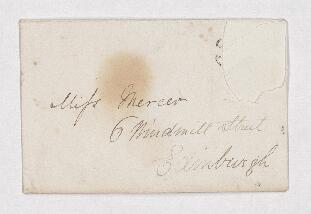 Miss Mercer
6 Windmill Street
Edinburgh